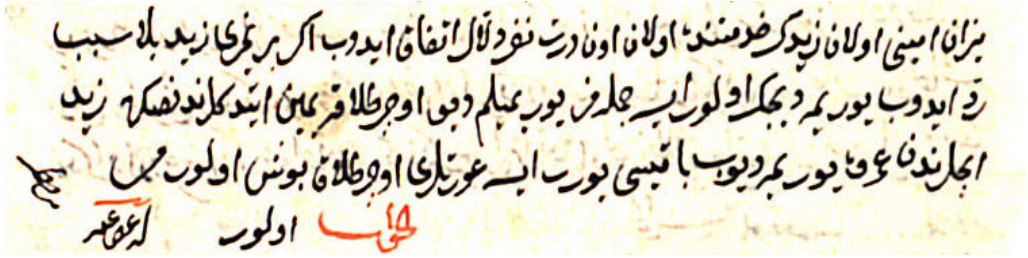 میزان امینی اولان زیدك خدمتنده اولان اون درت نفر دلال اتفاق ایدوب اکر بریمزی زید بلا سبب
رد ایدوب یوریمه دیجك اولور ایسه جمله مز یوریمیلم دیو اوچر طلاقه یمین ایتدکلرندنصکره زید
ایچلرندن عمروه یوریمه دیوب باقیسی یورسه عورتلری اوچر طلاق بوش اولور می
الجواب اولور